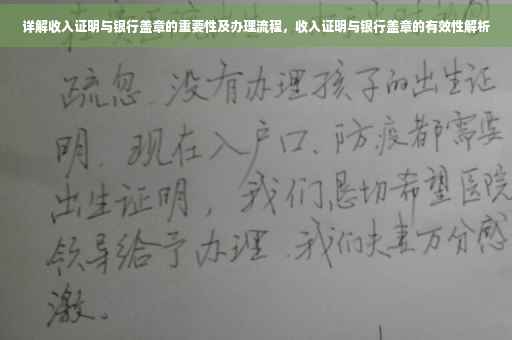 详解收入证明与银行盖章的重要性及办理流程，收入证明与银行盖章的有效性解析
疏忽、没有办理孩子的出生证
明、现在入户口、防疫都需要
出生证明，我们恳切希望医院
领导给予办理、我们夫妻万分感
激。